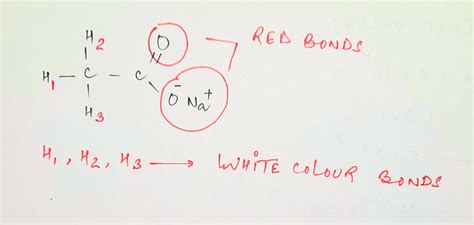 H2 O RED BONDS
H1 — C — C
O⁻ Na⁺
H3
H1, H2, H3 ⟶ WHITE COLOUR BONDS